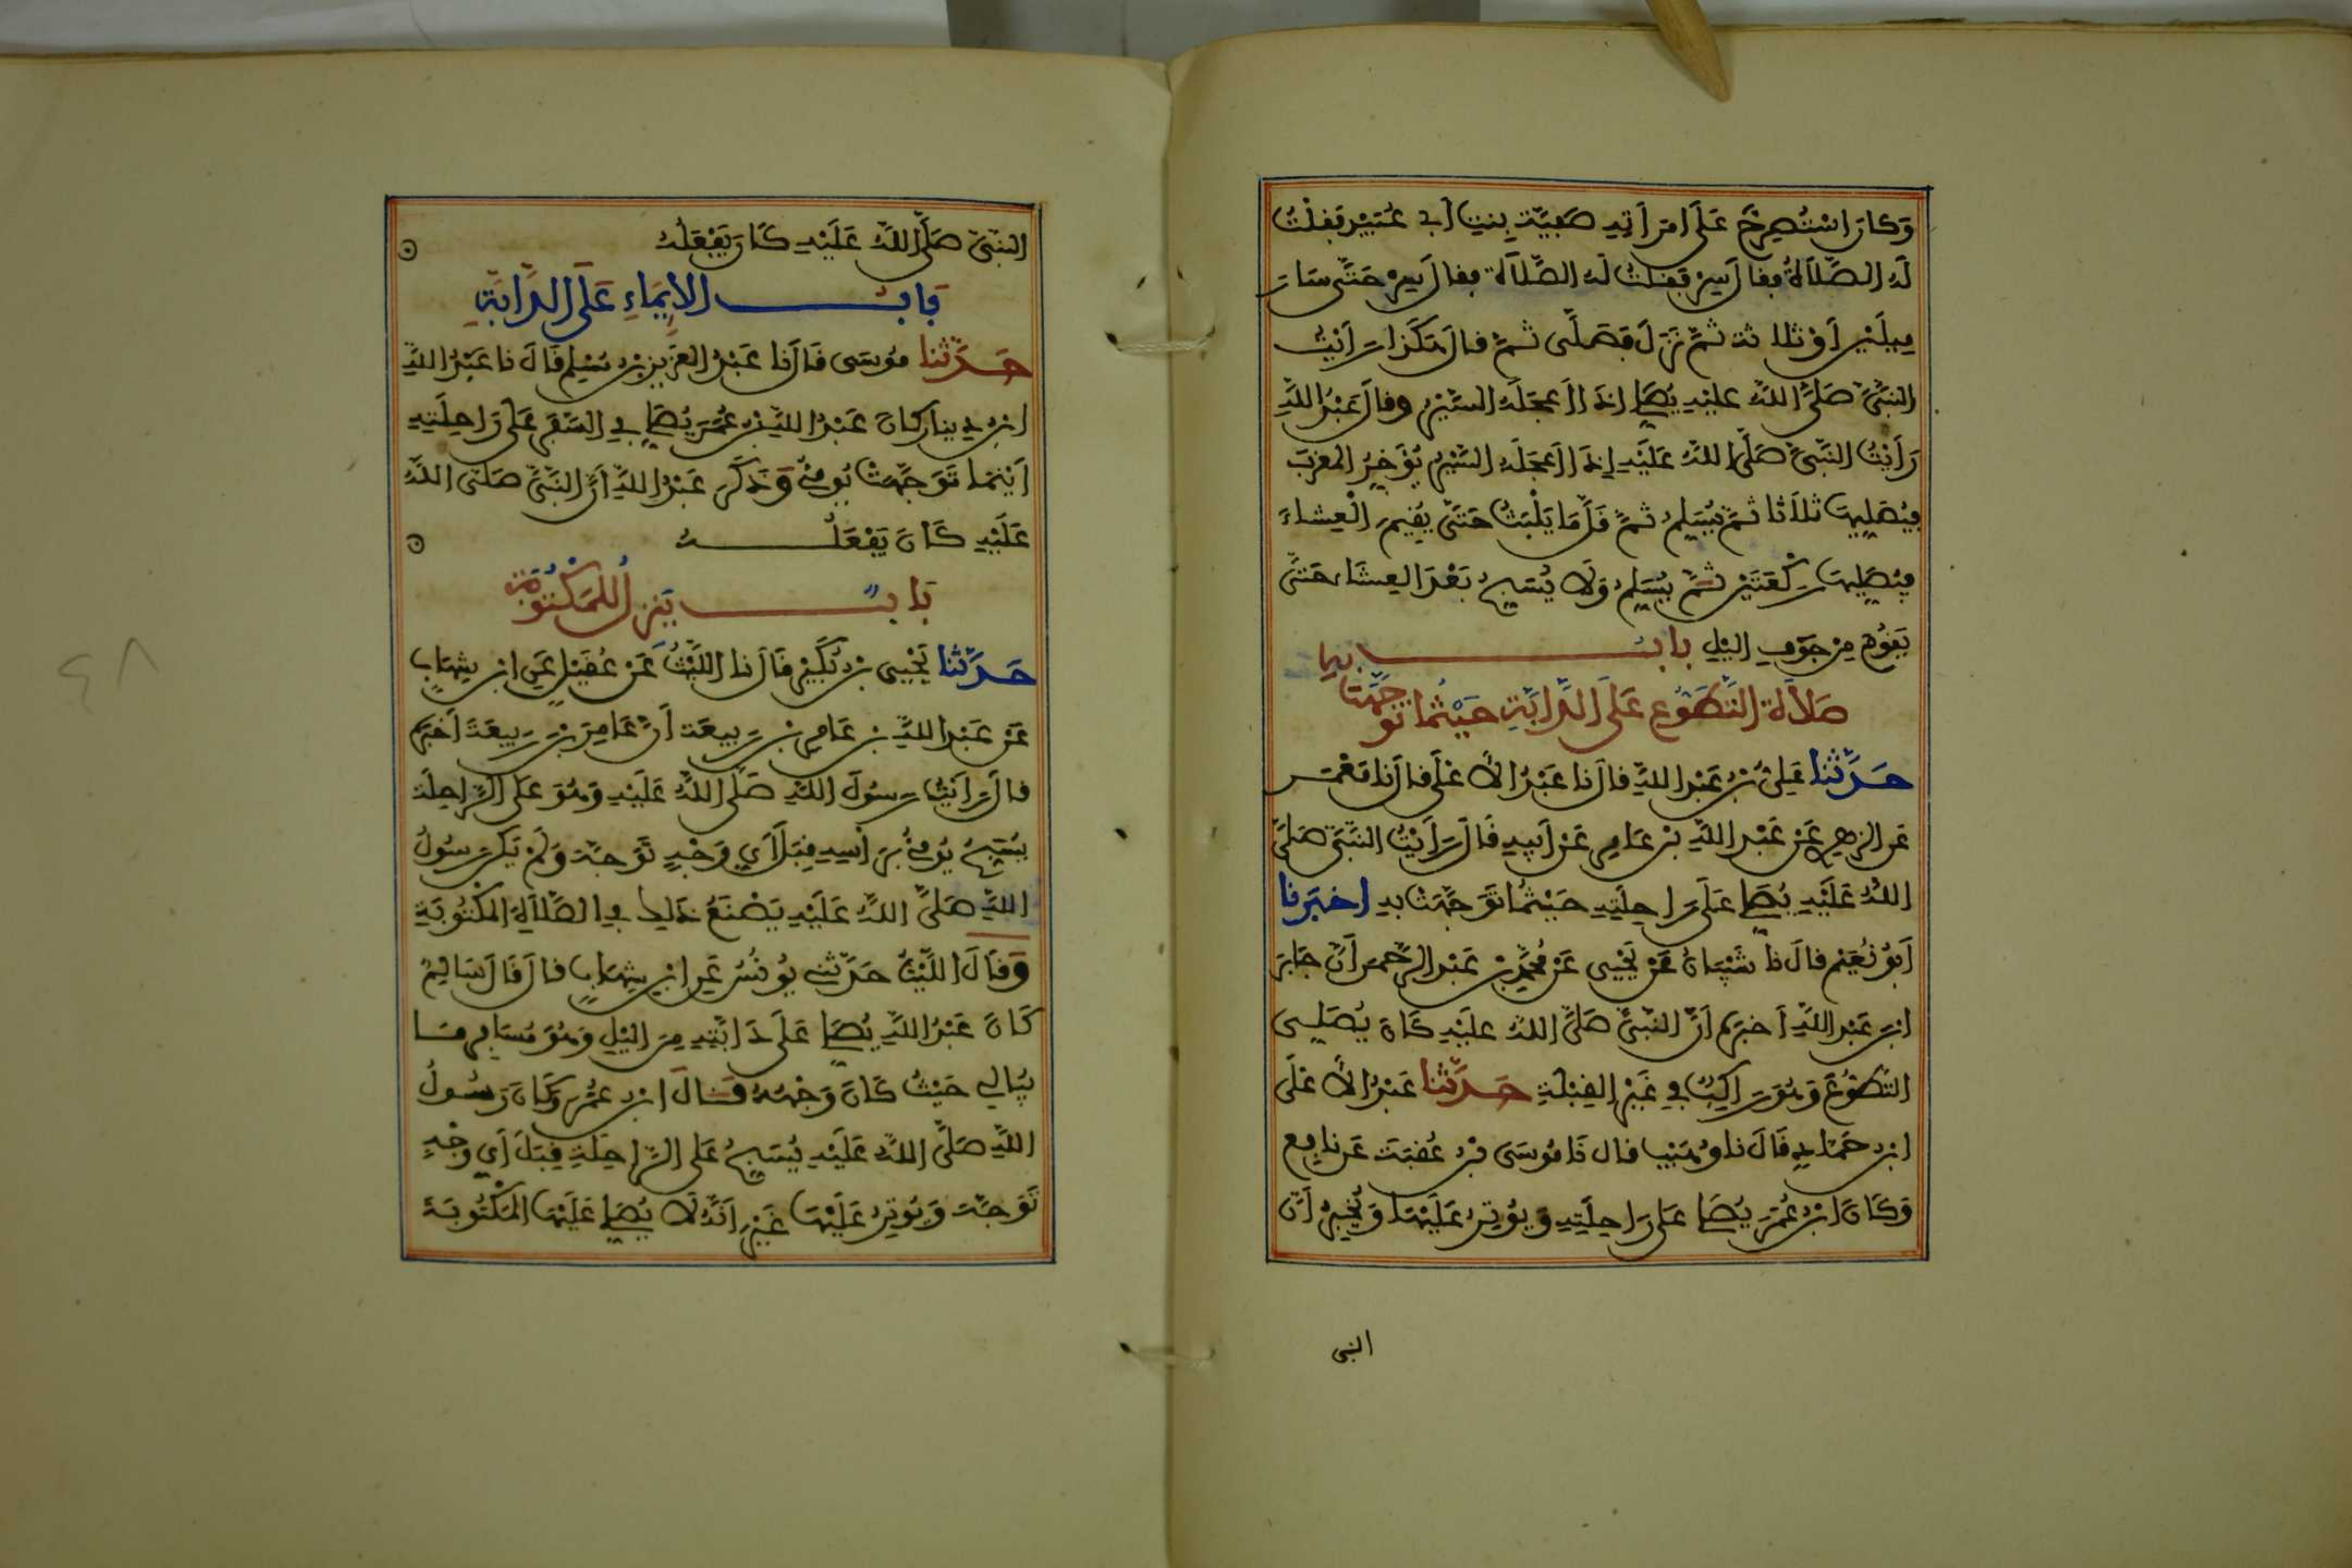 وَكان اسْتُصْرِخَ عَلَى امرَأتِهِ صَفِيَّةَ بِنتِ أبي عُبَيْدٍ فَقلْتُ
لَهُ الصَّلَاةُ فقال سِرْ فَقلتُ لَه الصَّلَاة فقال سِرْ حَتَّى سَارَ
مِيلَيْنِ أوْ ثلاثة ثمَّ نَزَلَ فَصَلَّى ثمَّ قال هَكَذا رَأيْتُ
النبيَّ صَلَّى اللهُ عليْهِ يُصَلِّي إذَا أعجَلَهُ السَّيْرُ وقال عَبْدُ اللهِ
رَأيْتُ النَّبيَّ صَلَّى اللهُ عَلَيْهِ إذَا أعجَلَهُ السَّيْرُ يُؤَخِّرُ المغربَ
فيُصَلِّيهَا ثلاَثا ثمَّ يُسَلِّمُ ثمَّ قَلَّمَا يَلْبَثُ حَتَّى يُقِيمَ الْعِشاءَ
فيُصَلِّيهَا رَكْعَتَيْنِ ثمَّ يُسَلِّمُ وَلَا يُسَبِّحُ بَعْدَ العِشَاء حَتَّى
يَقوُمَ مِنْ جَوْفِ اليْلِ بابُ
صَلاَة التَّطَوُّعِ عَلَى الدَّابَّةِ حَيْثُما تَوَجَّهَتْ
حَدَّثنا عَلِيُّ بْنُ عَبْدِ اللهِ قال نا عَبْدُ الأعْلَى قال نا مَعْمَر
عَنِ الزهرِي عَنْ عَبْدِ اللهِ بْنِ عَامِرٍ عَنْ أبِيهِ قَالَ رَأَيْتُ النَّبيَّ صَلَّى
اللهُ عَلَيْهِ يُصَلِّي عَلَى رَاحِلَتِهِ حَيْثُمَا تَوَجَّهَتْ بِهِ اخبَرنا
أَبُو نُعَيْمٍ قال نا شَيْبَانُ عَنْ يَحْيَى عَنْ مُحَمَّدِ بْنِ عَبْدِ الرَّحْمن أنَّ جَابِرَ
ابْنَ عَبْدِ اللهِ أخبَرَهُ أنَّ النَّبيَّ صَلَّى اللهُ عليْهِ كَانَ يُصَلِّي
التَّطَوُّعَ وَهُوَ رَاكِبٌ فِي غَيْرِ القِبْلَةِ حَدَّثنا عَبْدُ الأعْلَى
ابْنُ حَمَّادٍ قَالَ نا وُهَيْبٌ قال نَا مُوسَى بْنُ عُقبَةَ عَن نافِع
وَكَانَ ابْنُ عُمَرَ يُصَلِّي عَلَى رَاحِلَتِهِ وَيُوتِرُ عَلَيْهَا وَيُخْبِرُ أَنَّ
النبى
النَّبيَّ صَلَّى اللهُ عَلَيْهِ كَانَ يَفْعَلُهُ
بَابُ الإِيمَاءِ عَلَى الدَّابَّةِ
حَدَّثنا مُوسَى قَالَ نا عَبْدُ العَزِيزِ بْنُ مُسْلِمٍ قَالَ نا عَبْدُ اللهِ
ابْنُ دِينَارٍ كانَ عَبْدُ اللهِ بْنُ عُمَرَ يُصَلِّي فِي السَّفَرِ عَلَى رَاحِلَتِهِ
أَيْنَمَا تَوَجَّهَتْ يُومِئُ وَذَكَرَ عَبْدُ اللهِ أنَّ النَّبيَّ صَلَّى اللهُ
عَلَيْهِ كَانَ يَفْعَلُهُ
بَابٌ يَنزِلُ لِلمَكْتُوبَةِ
حَدَّثنا يَحْيَى بْنُ بُكَيْرٍ قَالَ نا اللَّيْثُ عَنْ عُقَيْلٍ عَنِ ابْنِ شِهَابٍ
عَنْ عَبْدِ اللهِ بنِ عَامِرِ بْنِ رَبِيعَةَ أنَّ عَامِرَ بْنَ رَبِيعَةَ أخبَرَهُ
قالَ رَأَيْتُ رَسُولَ اللهِ صَلَّى اللهُ عَلَيْهِ وَهُوَ عَلَى الرَّاحِلَة
يُسَبِّحُ يُومِئُ بِرَأسِهِ قِبَلَ أَيِّ وَجْهٍ تَوَجَّهَ وَلَمْ يَكُنْ رَسُولُ
اللهِ صَلَّى اللهُ عَلَيْهِ يَصْنَعُ ذَلِكَ فِي الصَّلَاةِ المَكْتُوبَةِ
وَقَالَ اللَّيْثُ حَدَّثَنِي يُونُسُ عَنِ ابْنِ شِهَابٍ قالَ قَالَ سَالِمٌ
كَانَ عَبْدُ اللهِ يُصَلِّي عَلَى دَابَّتِهِ مِنَ اليْلِ وَهُوَ مُسَافِرٌ مَا
يُبَالِي حَيْثُ كَانَ وَجْهُهُ قَالَ ابْنُ عُمَرَ وَكَانَ رَسُولُ
اللهِ صَلَّى اللهُ عَلَيْهِ يُسَبِّحُ عَلَى الرَّاحِلَةِ قِبَلَ أَيِّ وَجْهٍ
تَوَجَّهَ وَيُوتِرُ عَلَيْهَا غَيْرَ أَنَّهُ لَا يُصَلِّي عَلَيْهَا المَكْتُوبَةَ
٤٨